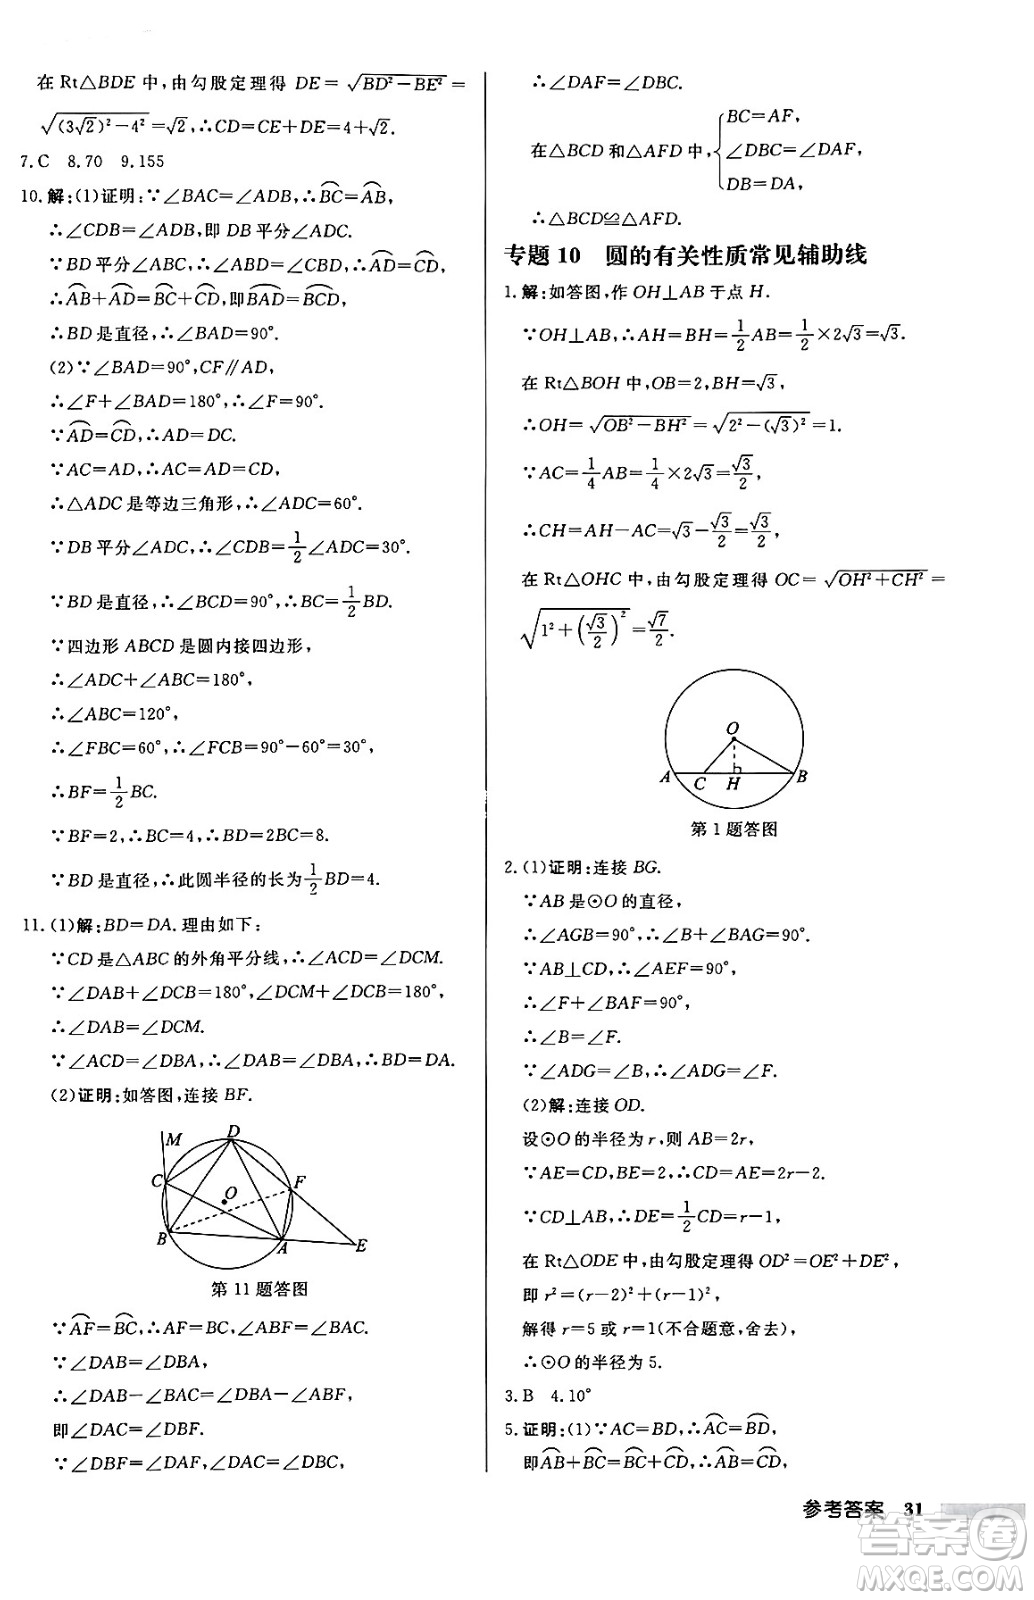 在 Rt△BDE 中,由勾股定理得 DE=√(BD²-BE²)=
√((3√2)²-4²)=√2,∴CD=CE+DE=4+√2.
7.C 8.70 9.155
10.解:(1)证明:∵∠BAC=∠ADB,∴⌒BC=⌒AB,
∴∠CDB=∠ADB,即 DB 平分∠ADC.
∵BD 平分∠ABC,∴∠ABD=∠CBD,∴⌒AD=⌒CD,
∴⌒AB+⌒AD=⌒BC+⌒CD,即⌒BAD=⌒BCD,
∴BD 是直径,∴∠BAD=90°.
(2)∵∠BAD=90°,CF∥AD,
∴∠F+∠BAD=180°,∴∠F=90°.
∵⌒AD=⌒CD,∴AD=DC.
∵AC=AD,∴AC=AD=CD,
∴△ADC 是等边三角形,∴∠ADC=60°.
∵DB 平分∠ADC,∴∠CDB=1/2∠ADC=30°.
∵BD 是直径,∴∠BCD=90°,∴BC=1/2BD.
∵四边形 ABCD 是圆内接四边形,
∴∠ADC+∠ABC=180°,
∴∠ABC=120°,
∴∠FBC=60°,∴∠FCB=90°-60°=30°,
∴BF=1/2BC.
∵BF=2,∴BC=4,∴BD=2BC=8.
∵BD 是直径,∴此圆半径的长为1/2BD=4.
11.(1)解:BD=DA.理由如下:
∵CD 是△ABC 的外角平分线,∴∠DCA=∠DCM.
∵∠DAB+∠DCB=180°,∠DCM+∠DCB=180°,
∴∠DAB=∠DCM.
∵∠ACD=∠DBA,∴∠DAB=∠DBA,∴BD=DA.
(2)证明:如答图,连接 BF.
M
D
C
F
O
B
A
E
第 11 题答图
∵⌒AF=⌒BC,∴AF=BC,∠ABF=∠BAC.
∵∠DAB=∠DBA,
∴∠DAB-∠BAC=∠DBA-∠ABF,
即∠DAC=∠DBF.
∵∠DBF=∠DAF,∠DAC=∠DBC,
∴∠DAF=∠DBC.
在△BCD 和△AFD 中,{BC=AF,
∠DBC=∠DAF,
DB=DA,
∴△BCD≌△AFD.
专题 10 圆的有关性质常见辅助线
1.解:如答图,作 OH⊥AB 于点 H.
∵OH⊥AB,∴AH=BH=1/2AB=1/2×2√3=√3.
在 Rt△BOH 中,OB=2,BH=√3,
∴OH=√(OB²-BH²)=√(2²-(√3)²)=1.
∵AC=1/4AB=1/4×2√3=√3/2,
∴CH=AH-AC=√3-√3/2=√3/2,
在 Rt△OHC 中,由勾股定理得 OC=√(OH²+CH²)=
√(1²+(√3/2)²)=√7/2.
O
A
C
H
B
第 1 题答图
2.(1)证明:连接 BG.
∵AB 是⊙O 的直径,
∴∠AGB=90°,∴∠B+∠BAG=90°.
∵AB⊥CD,∴∠AEF=90°,
∴∠F+∠BAF=90°,
∴∠B=∠F.
∵∠ADG=∠B,∴∠ADG=∠F.
(2)解:连接 OD.
设⊙O 的半径为 r,则 AB=2r,
∵AE=CD,BE=2,∴CD=AE=2r-2,
∵CD⊥AB,∴DE=1/2CD=r-1,
在 Rt△ODE 中,由勾股定理得 OD²=OE²+DE²,
即 r²=(r-2)²+(r-1)²,
解得 r=5 或 r=1(不合题意,舍去),
∴⊙O 的半径为 5.
3.B 4.10°
5.证明:(1)∵AC=BD,∴⌒AC=⌒BD,
即⌒AB+⌒BC=⌒BC+⌒CD,∴⌒AB=⌒CD,
参考答案 31
答案圈